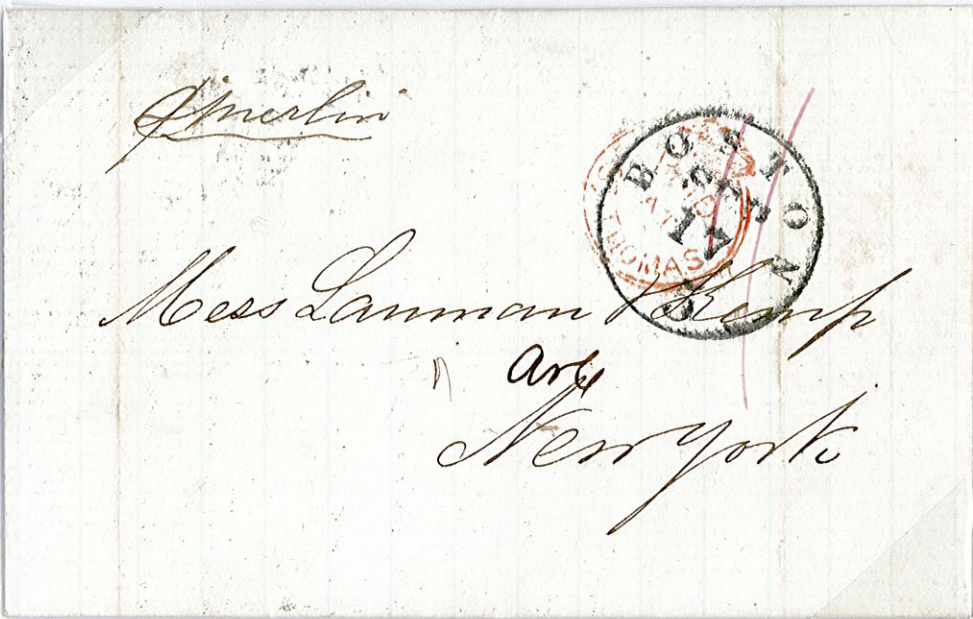 p Merlin
BOSTON
17
THOMAS
Mess Lanman & Kemp
New York